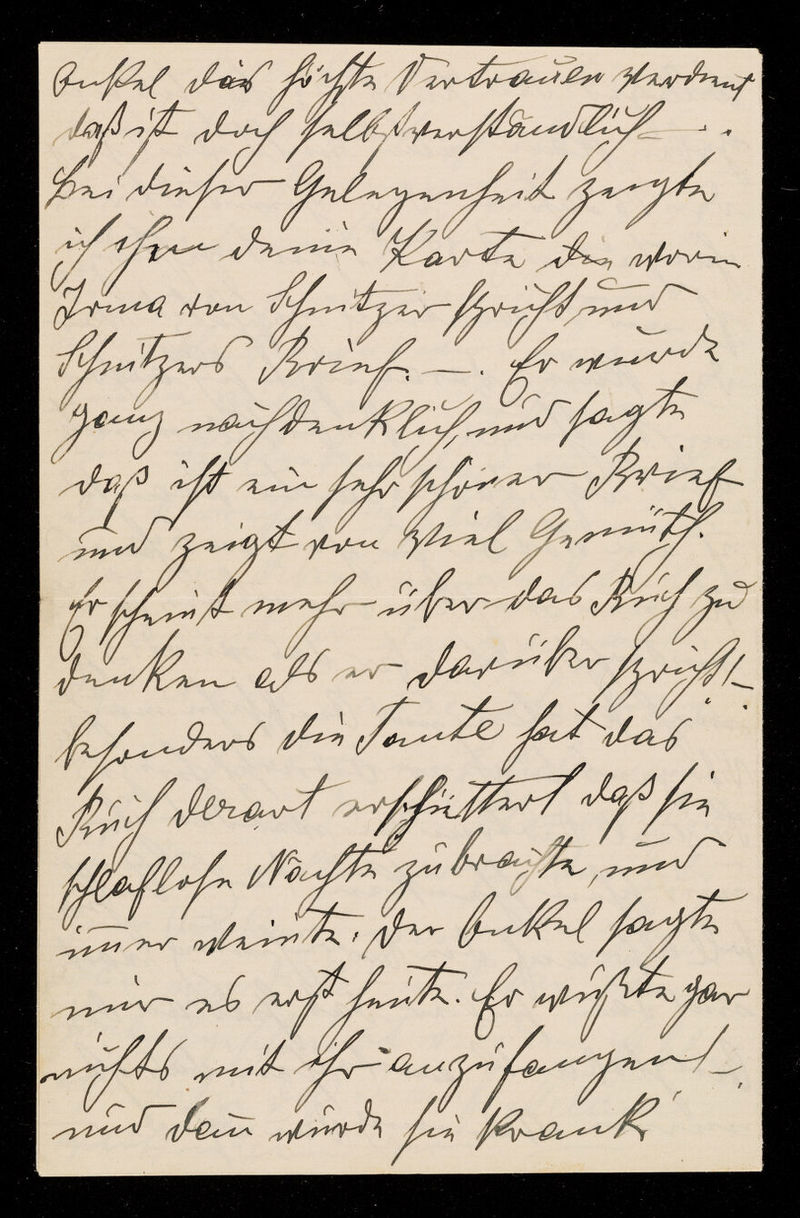 Onkel das höchste Vertrauen verdient
daß ist doch selbstverständlich —.
Bei dieser Gelegenheit zeigte
ich ihm deine Karte die worin
Irma von Schnitzer spricht und
Schnitzers Brief. —. Er wurde
ganz nachdenklich, und sagte
daß ist ein sehr schöner Brief
und zeigt von viel Gemüth.
Er scheint mehr über das Buch zu
denken als er darüber spricht! —.
besonders die Tante hat das
Buch derart erschüttert daß sie
schlaflose Nächte zubrachte, und
im̅er weinte. Der Onkel sagte
mir es erst heute. Er wußte gar
nichts mit ihr anzufangen! —.
und dan̅ wurde sie krank